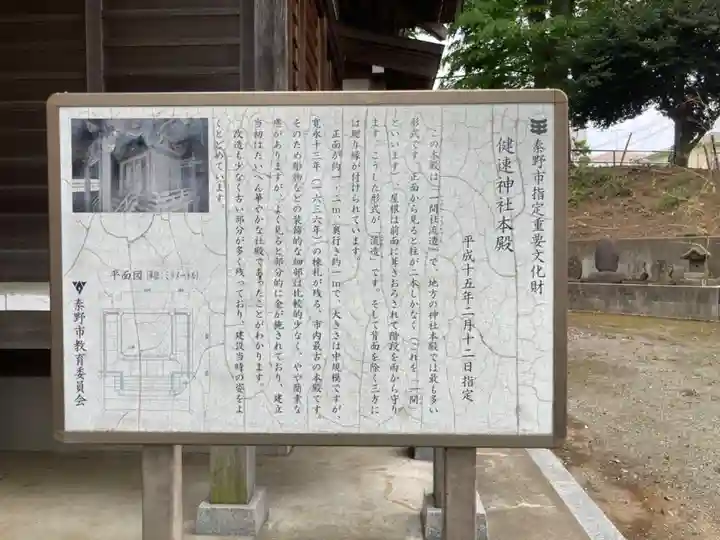 秦野市指定重要文化財
健速神社本殿
平成十五年二月十二日指定
この本殿は「一間社流造」で、地方の神社本殿では最も多い
形式です。正面から見ると柱が二本しかなく（これを「一間」
といいます）、屋根は前面に葺きおろされて階段を雨から守り
ます。こうした形式が「流造」です。そして背面を除く三方に
は廻り縁が付けられています。
正面が約一・二m、奥行き約一mで、大きさは中規模ですが、
寛永十三年（一六三六年）の棟札が残る、市内最古の本殿です。
そのため彫物などの装飾的な細部は比較的少なく、やや簡素な
感がありますが、よく見ると部分的に金が施されており、建立
当初はたいへん華やかな社殿であったことがわかります。
改造も少なく古い部分が多く残っており、建設当時の姿をよ
くとどめています。
平面図
秦野市教育委員会